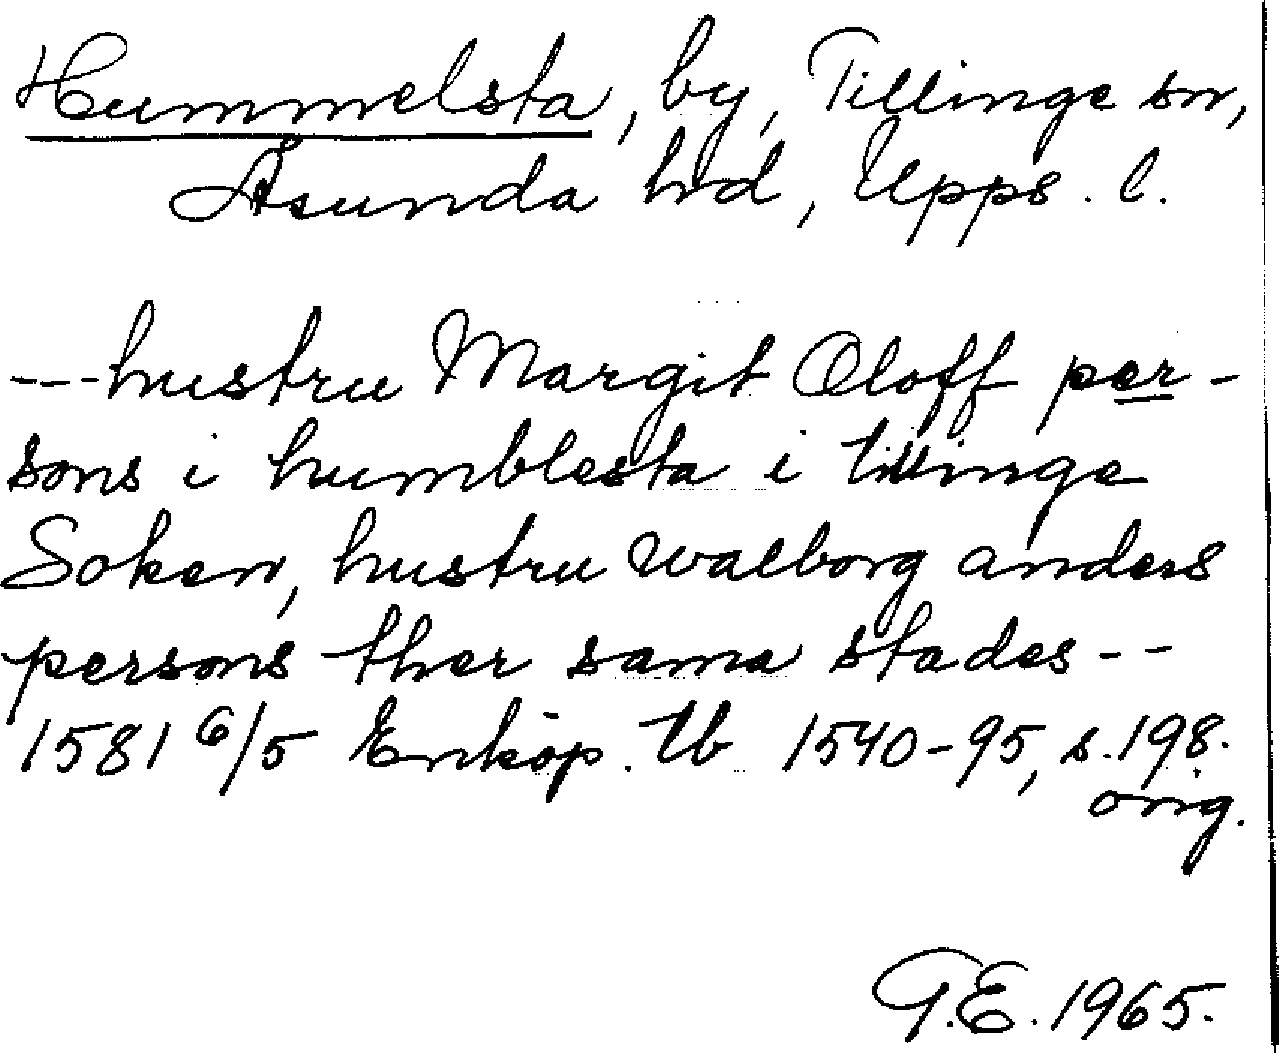 Hummelsta, by, Tillinge sn,
Åsunda hd, Upps. l.
---hustru Margit Oloff per-
sons i humblesta i tillinge
Soken, hustru walborg anders
persons ther sama stades--
1581 6/5 Enköp. tb 1540-95, s. 198.
orig.
G.E. 1965.